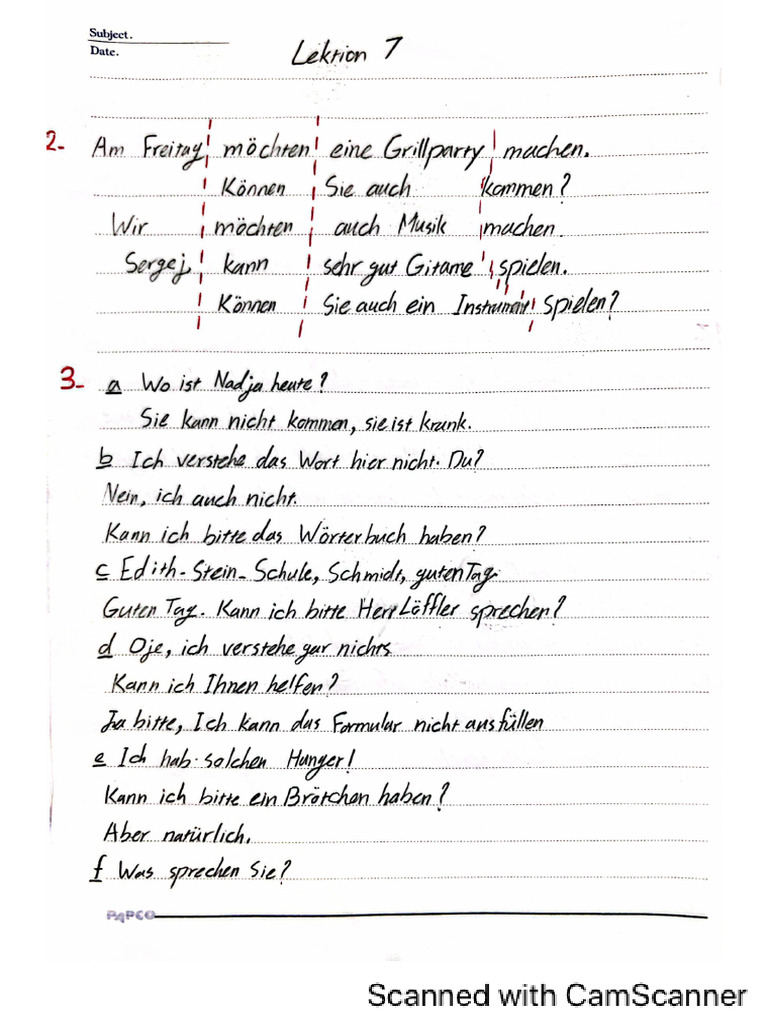 Subject.
Date.
Lektion 7
2- Am Freitag möchten eine Grillparty machen.
Können Sie auch kommen?
Wir möchten auch Musik machen.
Sergej kann sehr gut Gitarre spielen.
Können Sie auch ein Instrument spielen?
3- a Wo ist Nadja heute?
Sie kann nicht kommen, sie ist krank.
b Ich verstehe das Wort hier nicht. Du?
Nein, ich auch nicht.
Kann ich bitte das Wörterbuch haben?
c Edith-Stein-Schule, Schmidt, guten Tag.
Guten Tag. Kann ich bitte Herr Löffler sprechen?
d Oje, ich verstehe gar nichts
Kann ich Ihnen helfen?
Ja bitte, Ich kann das Formular nicht ausfüllen
e Ich hab solchen Hunger!
Kann ich bitte ein Brötchen haben?
Aber natürlich.
f Was sprechen Sie?
PAPCO
Scanned with CamScanner